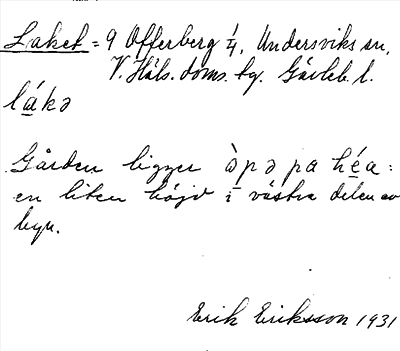 Laket = 9 Offerberg 1/4, Undersviks sn,
V. Häls. doms. tg. Gävleb. l.
lákə
Gården ligger àpə pa héa:
en liten höjd i västra delen av
byn.
Erik Eriksson 1931